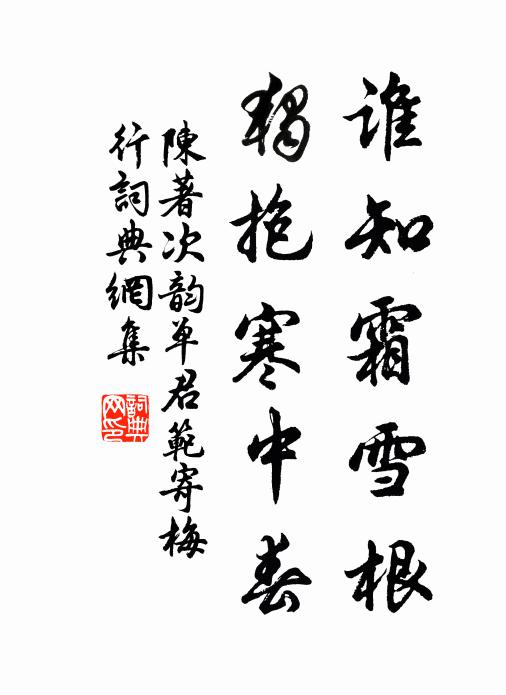 谁知霜雪根
獨抱寒中春
陳著次韵单君範寄梅
行詞典網集
詞典网印